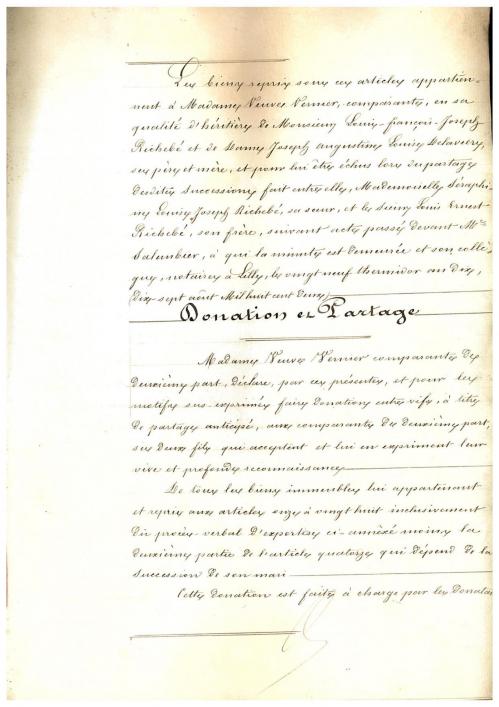 Les biens repris sous ces articles appartien-
nent à Madame Veuve Vernier, comparante, en sa
qualité d'héritière de Monsieur Louis-françois-Joseph
Richebé et de Dame Joseph augustine Louise Delavery,
ses père et mère, et pour lui être échus lors du partage
desdites successions fait entre elle, Mademoiselle Séraphi-
ne Louise Joseph Richebé, sa sœur, et le sieur Louis Ernest
Richebé, son frère, suivant acte passé devant Mtre
Salembier, à qui la minute est demeurée et son collè-
gue, notaires à Lille, le vingt neuf thermidor an dix,
(dix-sept août Mil huit cent deux)
Donation et Partage
Madame Veuve Vernier comparante de
deuxième part, déclare, par ces présentes, et pour les
motifs sus-exprimés faire donation entre vifs, à titre
de partage anticipé, aux comparants de deuxième part,
ses deux fils qui acceptent et lui en expriment leur
vive et profonde reconnaissance
De tous les biens immeubles lui appartenant
et repris aux articles onze à vingt huit inclusivement
du procès-verbal d'expertise ci-annéxé moins la
deuxième partie de l'article quatorze qui dépend de la
succession de son mari
Cette donation est faite à charge par les Donatai